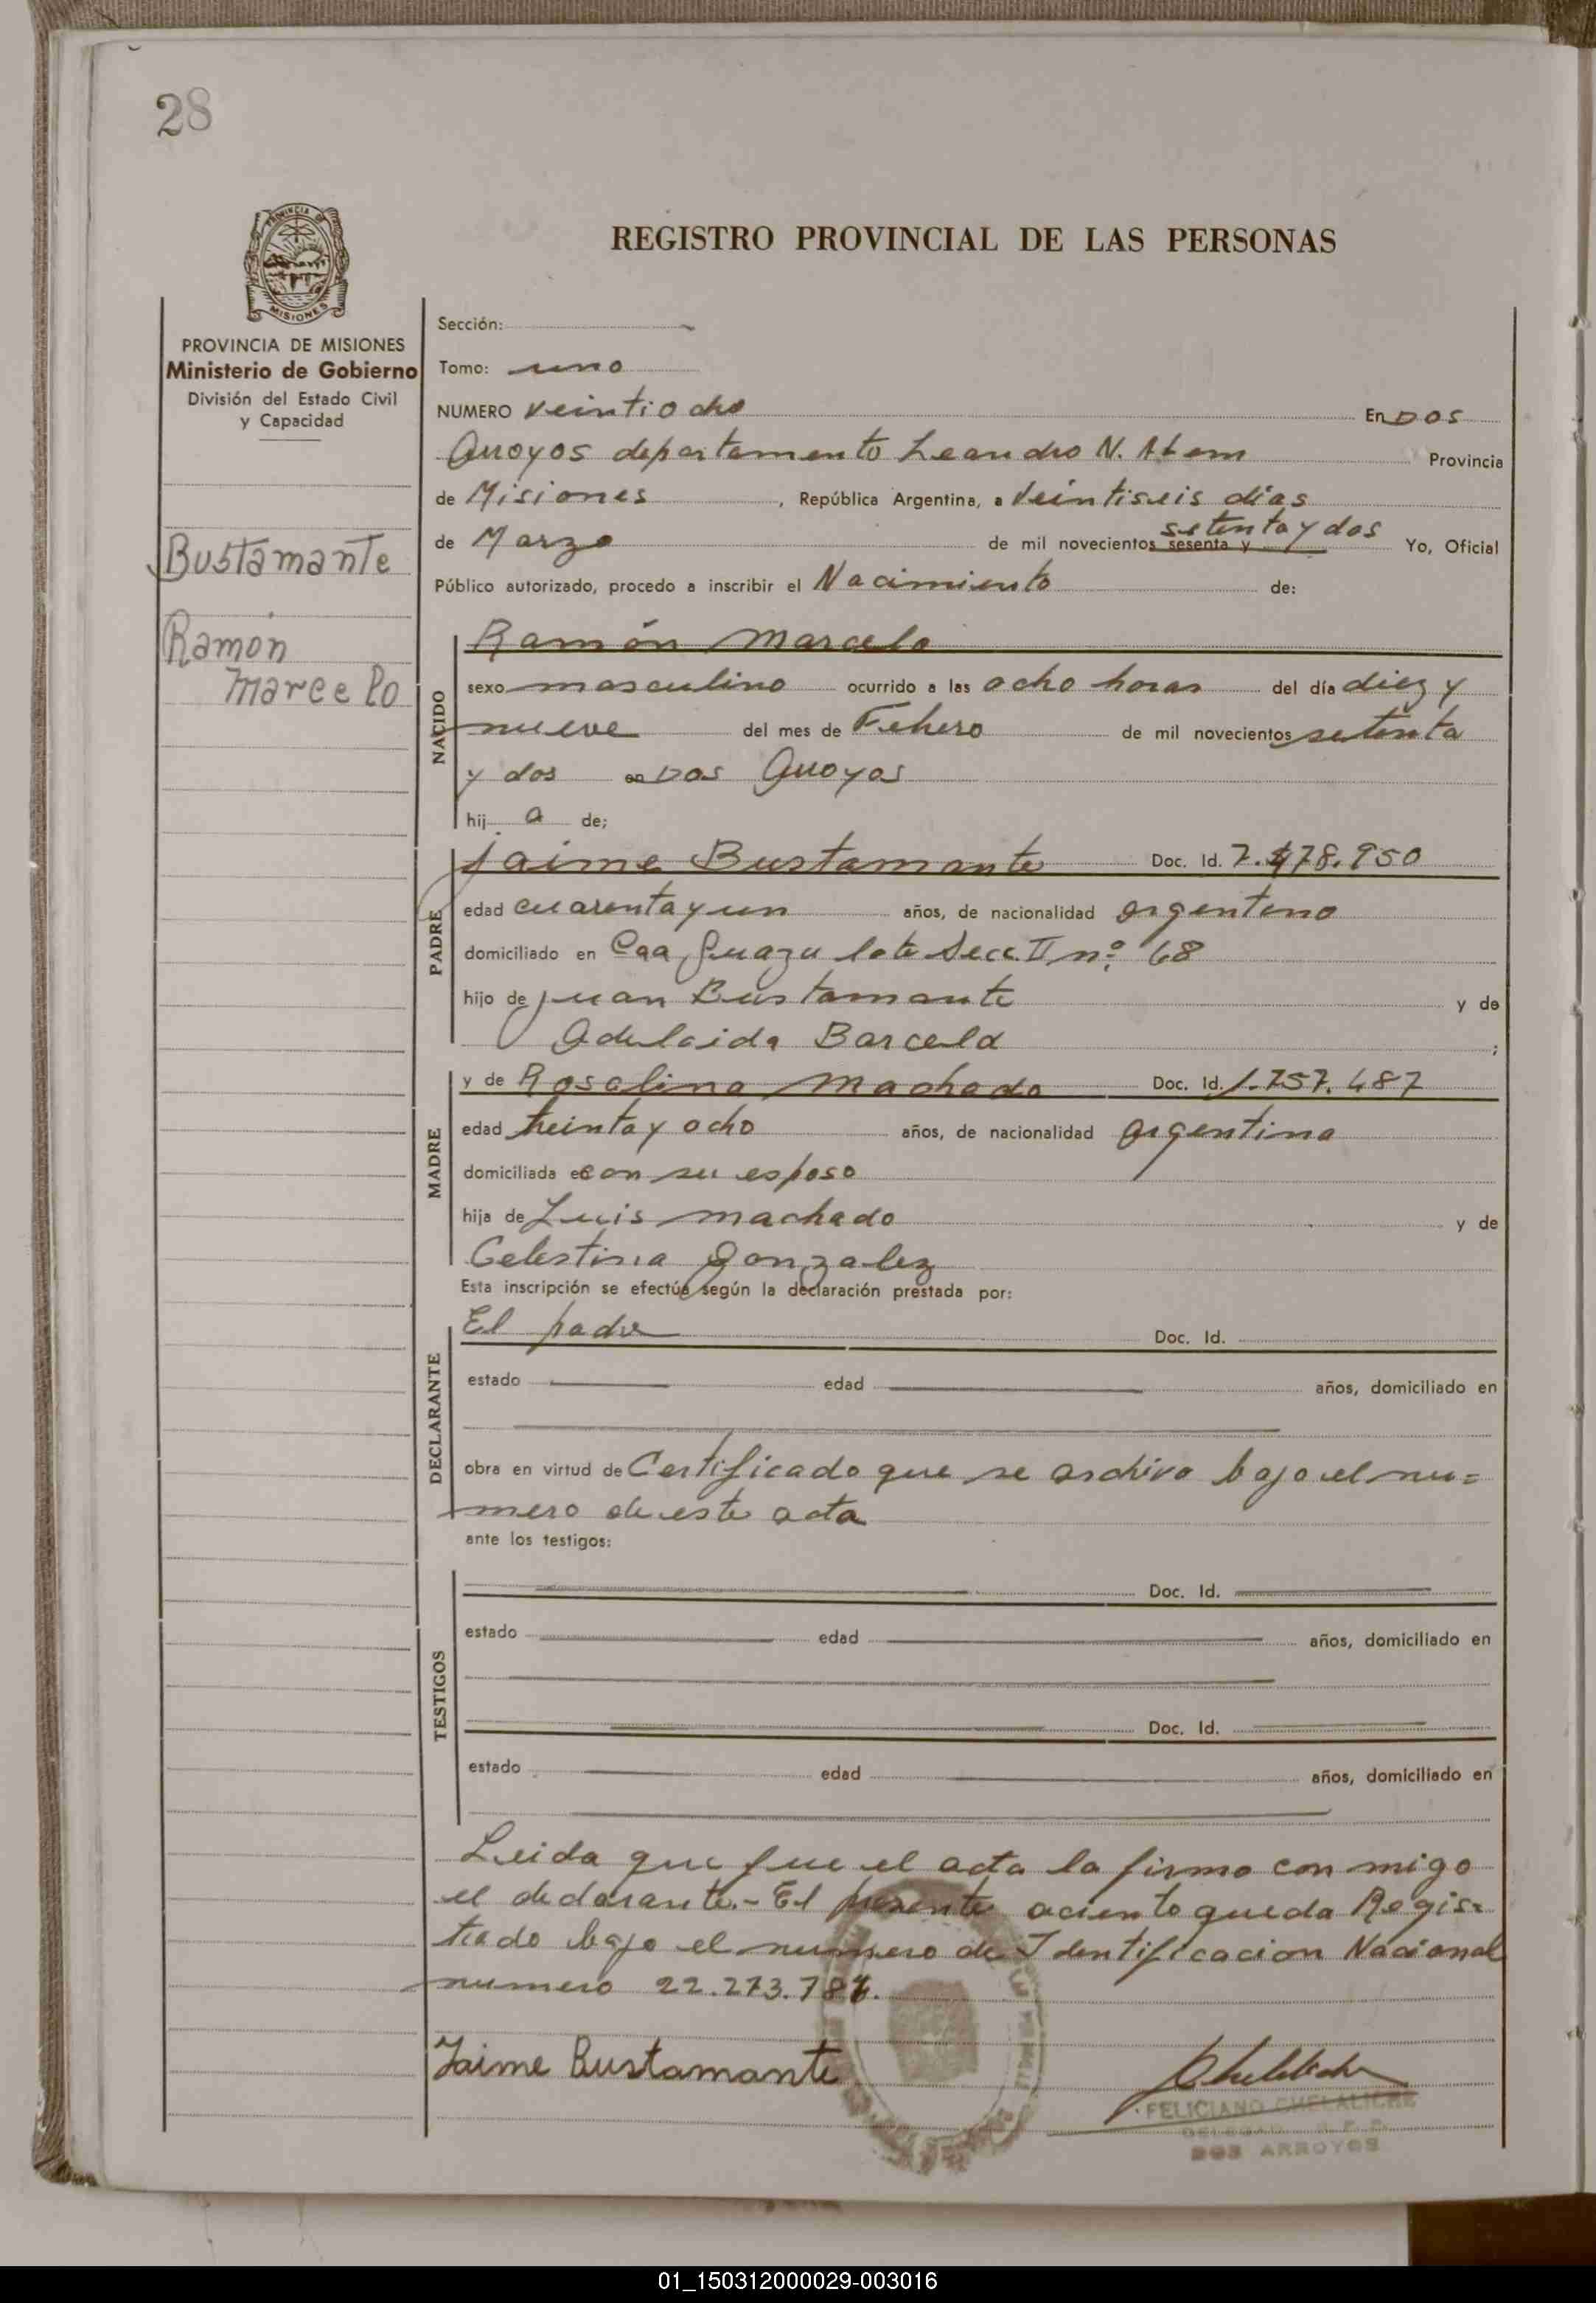 28
PROVINCIA DE
MISIONES
REGISTRO PROVINCIAL DE LAS PERSONAS
PROVINCIA DE MISIONES
Ministerio de Gobierno
División del Estado Civil
y Capacidad
Bustamante
Ramón
Marcelo
Sección:
Tomo: uno
NUMERO veintiocho En DOS
Arroyos departamento Leandro N. Alem Provincia
de Misiones, República Argentina, a veintiseis días
setenta y dos
de Marzo de mil novecientos sesenta y Yo, Oficial
Público autorizado, procedo a inscribir el Nacimiento de:
NACIDO
Ramón Marcelo
sexo masculino ocurrido a las ocho horas del día diez y
nueve del mes de Febrero de mil novecientos setenta
y dos en Dos Arroyos
hij a de;
PADRE
Jaime Bustamante Doc. Id. 7.478.950
edad cuarenta y un años, de nacionalidad argentino
domiciliado en Caa Guazu lote Secc. II nº 68
hijo de Juan Bustamante y de
Adelaida Barcela ;
MADRE
y de Rosalina Machado Doc. Id. 1.757.487
edad treinta y ocho años, de nacionalidad argentina
domiciliada con su esposo
hija de Luis Machado y de
Celestina Gonzalez
Esta inscripción se efectúa según la declaración prestada por:
DECLARANTE
El padre Doc. Id.
estado edad años, domiciliado en
obra en virtud de Certificado que se archiva bajo el nu=
mero de este acta
ante los testigos:
TESTIGOS
Doc. Id.
estado edad años, domiciliado en
Doc. Id.
estado edad años, domiciliado en
Leida que fue el acta la firmo con migo
el declarante.- El presente aciento queda Regis=
trado bajo el numero de Identificacion Nacional
numero 22.273.787.
Jaime Bustamante
FELICIANO CHELALICHE
DOS ARROYOS
01_150312000029-003016